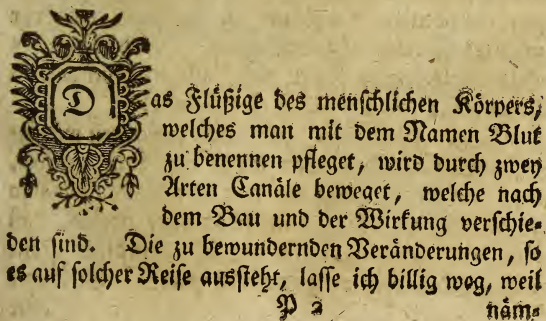 Das Flüßige des menschlichen Körpers,
welches man mit dem Namen Blut
zu benennen pfleget, wird durch zwey
Arten Canäle beweget, welche nach
dem Bau und der Wirkung verschie-
den sind. Die zu bewundernden Veränderungen, so
es auf solcher Reise aussteht, lasse ich billig weg, weil
P 2 näm-